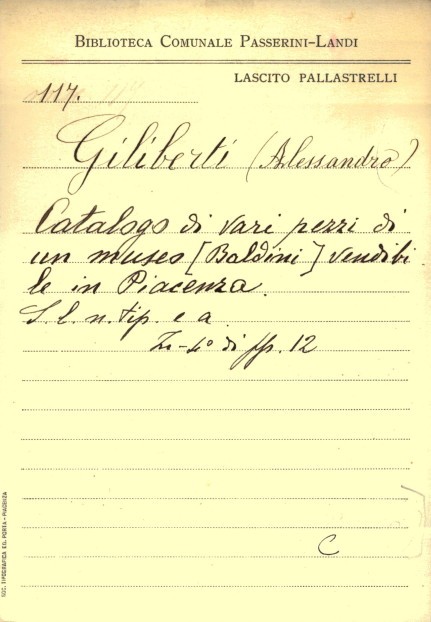 BIBLIOTECA COMUNALE PASSERINI-LANDI
LASCITO PALLASTRELLI
117.
Giliberti (Alessandro)
Catalogo di vari pezzi di
un museo [Baldini] vendibi
le in Piacenza.
S. l. n. tip. e a.
In-4° di pp. 12
C
SOC. TIPOGRAFICA ED. PORTA - PIACENZA